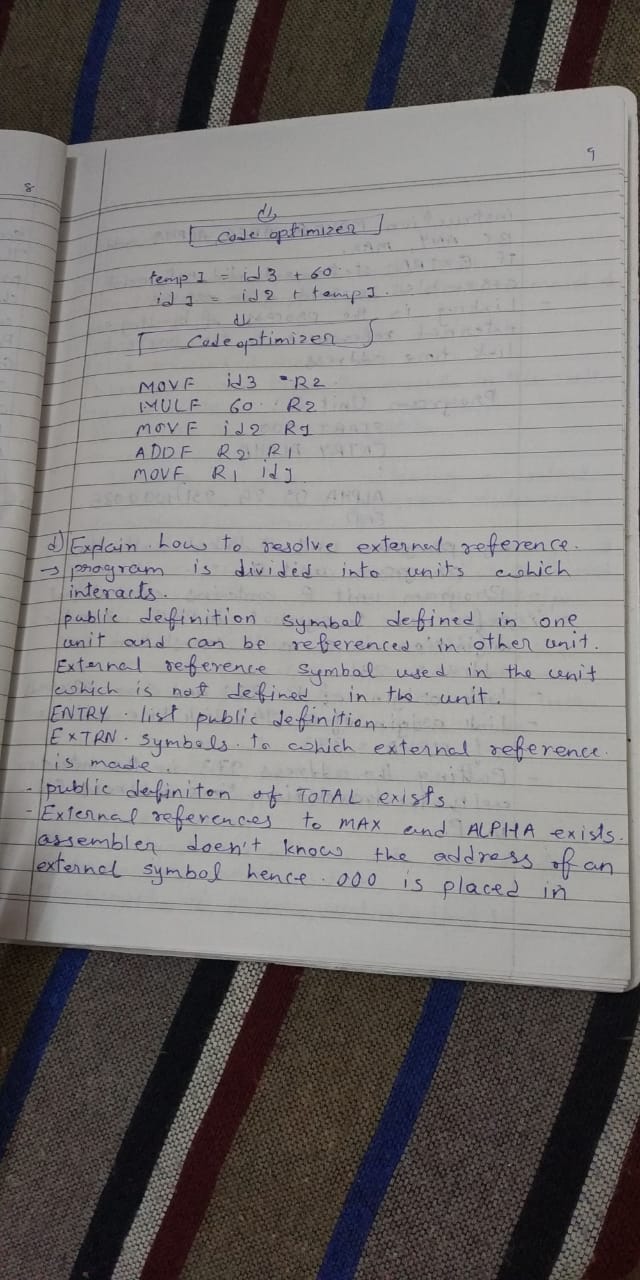 9
8
Code optimizer
temp 1 = id3 + 60
id 1 = id2 + temp1.
Code optimizer
MOVF id3 R2
MULF 60. R2
MOVF id2 R1
ADDF R2 R1
MOVF R1 id1
d) Explain how to resolve external reference.
→ program is divided into units which
interacts.
public definition symbol defined in one
unit and can be referenced in other unit.
External reference symbol used in the unit
which is not defined in the unit.
ENTRY. list public definition.
EXTRN. symbols to which external reference.
is made.
- public definiton of TOTAL exists.
- External references to MAX and ALPHA exists.
assembler doen't know the address of an
external symbol hence. 000 is placed in